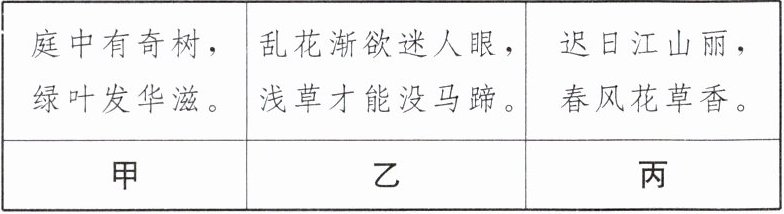 庭中有奇树，
绿叶发华滋。
乱花渐欲迷人眼，
浅草才能没马蹄。
迟日江山丽，
春风花草香。
甲
乙
丙